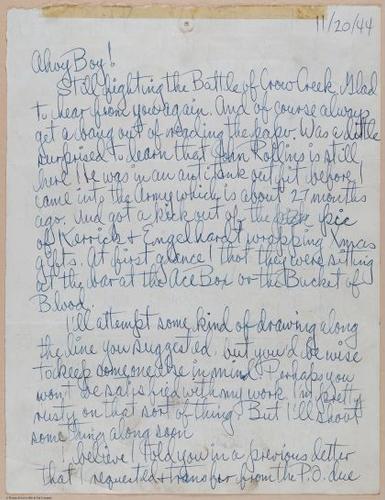 11/20/44
Ahoy Boy!
Still fighting the Battle of Crow Creek. Glad
to hear from you again. And of course always
get a bang out of reading the paper. Was a little
surprised to learn that John Rollins is still
here. He was in an anti tank outfit before I
came into the Army which is about 27 months
ago. And got a kick out of the pic
of Kerrick & Engelhardt wrapping Xmas
gifts. At first glance I that they were sitting
at the bar at the Ace Box or the Bucket of
Blood.
I'll attempt some kind of drawing along
the line you suggested, but you'd be wise
to keep someone else in mind. Perhaps you
won't be satisfied with my work. I'm pretty
rusty on that sort of thing. But I'll shoot
something along soon
I believe I told you in a previous letter
that I requested a transfer from the P.O. due